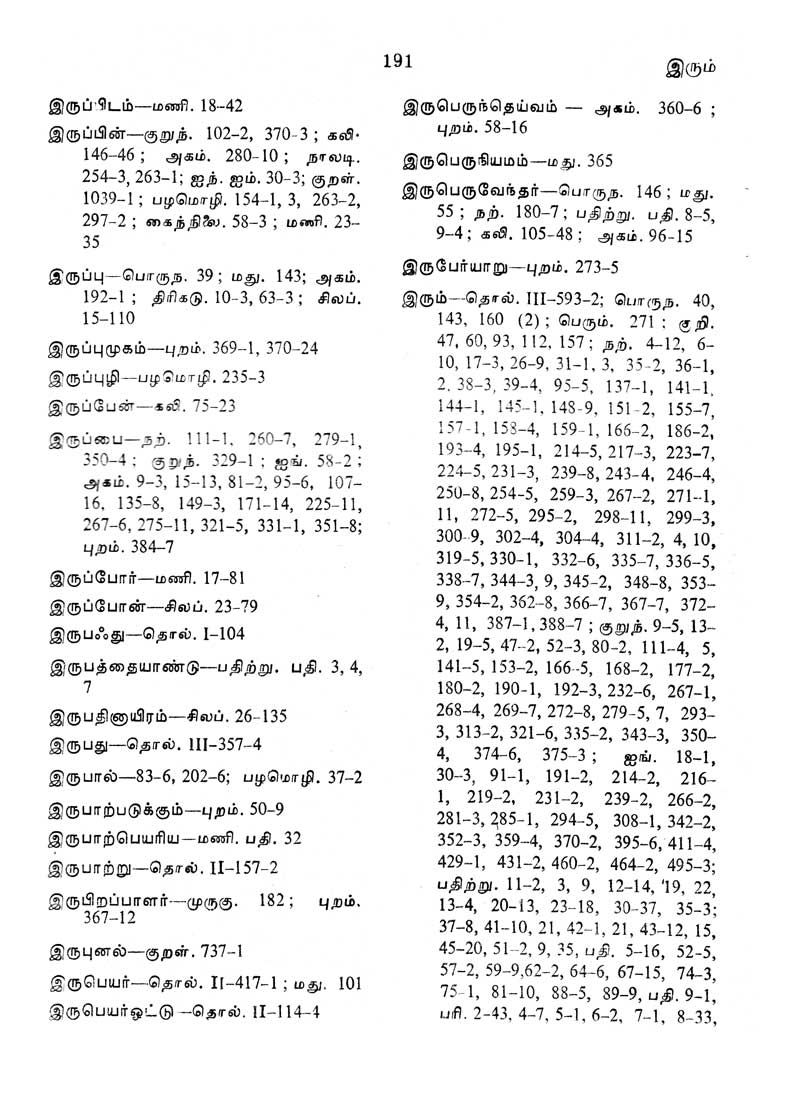 191
இரும்
இருப்பிடம்—மணி. 18-42
இருப்பின்—குறுந். 102-2, 370-3 ; கலி.
146-46 ; அகம். 280-10 ; நாலடி.
254-3, 263-1; ஐந். ஐம். 30-3; குறள்.
1039-1 ; பழமொழி. 154-1, 3, 263-2,
297-2 ; கைந்நிலை. 58-3 ; மணி. 23-
35
இருப்பு—பொருந. 39 ; மது. 143; அகம்.
192-1 ; திரிகடு. 10-3, 63-3 ; சிலப்.
15-110
இருப்புமுகம்—புறம். 369-1, 370-24
இருப்புழி—பழமொழி. 235-3
இருப்பேன்—கலி. 75-23
இருப்பை—நற். 111-1, 260-7, 279-1,
350-4 ; குறுந். 329-1 ; ஐங். 58-2 ;
அகம். 9-3, 15-13, 81-2, 95-6, 107-
16, 135-8, 149-3, 171-14, 225-11,
267-6, 275-11, 321-5, 331-1, 351-8;
புறம். 384-7
இருப்போர்—மணி. 17-81
இருப்போன்—சிலப். 23-79
இருபஃது—தொல். I-104
இருபத்தையாண்டு—பதிற்று. பதி. 3, 4,
7
இருபதினாயிரம்—சிலப். 26-135
இருபது—தொல். III-357-4
இருபால்—83-6, 202-6; பழமொழி. 37-2
இருபாற்படுக்கும்—புறம். 50-9
இருபாற்பெயரிய—மணி. பதி. 32
இருபாற்று—தொல். II-157-2
இருபிறப்பாளர்—முருகு. 182 ; புறம்.
367-12
இருபுனல்—குறள். 737-1
இருபெயர்—தொல். II-417-1 ; மது. 101
இருபெயர்ஒட்டு—தொல். II-114-4
இருபெருந்தெய்வம் — அகம். 360-6 ;
புறம். 58-16
இருபெருநியமம்—மது. 365
இருபெருவேந்தர்—பொருந. 146 ; மது.
55 ; நற். 180-7 ; பதிற்று. பதி. 8-5,
9-4 ; கலி. 105-48 ; அகம். 96-15
இருபேர்யாறு—புறம். 273-5
இரும்—தொல். III-593-2; பொருந. 40,
143, 160 (2) ; பெரும். 271 ; குறி.
47, 60, 93, 112, 157 ; நற். 4-12, 6-
10, 17-3, 26-9, 31-1, 3, 35-2, 36-1,
2, 38-3, 39-4, 95-5, 137-1, 141-1,
144-1, 145-1, 148-9, 151-2, 155-7,
157-1, 158-4, 159-1, 166-2, 186-2,
193-4, 195-1, 214-5, 217-3, 223-7,
224-5, 231-3, 239-8, 243-4, 246-4,
250-8, 254-5, 259-3, 267-2, 271-1,
11, 272-5, 295-2, 298-11, 299-3,
300-9, 302-4, 304-4, 311-2, 4, 10,
319-5, 330-1, 332-6, 335-7, 336-5,
338-7, 344-3, 9, 345-2, 348-8, 353-
9, 354-2, 362-8, 366-7, 367-7, 372-
4, 11, 387-1, 388-7 ; குறுந். 9-5, 13-
2, 19-5, 47-2, 52-3, 80-2, 111-4, 5,
141-5, 153-2, 166-5, 168-2, 177-2,
180-2, 190-1, 192-3, 232-6, 267-1,
268-4, 269-7, 272-8, 279-5, 7, 293-
3, 313-2, 321-6, 335-2, 343-3, 350-
4, 374-6, 375-3 ; ஐங். 18-1,
30-3, 91-1, 191-2, 214-2, 216-
1, 219-2, 231-2, 239-2, 266-2,
281-3, 285-1, 294-5, 308-1, 342-2,
352-3, 359-4, 370-2, 395-6, 411-4,
429-1, 431-2, 460-2, 464-2, 495-3;
பதிற்று. 11-2, 3, 9, 12-14, 19, 22,
13-4, 20-13, 23-18, 30-37, 35-3;
37-8, 41-10, 21, 42-1, 21, 43-12, 15,
45-20, 51-2, 9, 35, பதி. 5-16, 52-5,
57-2, 59-9, 62-2, 64-6, 67-15, 74-3,
75-1, 81-10, 88-5, 89-9, பதி. 9-1,
பரி. 2-43, 4-7, 5-1, 6-2, 7-1, 8-33,